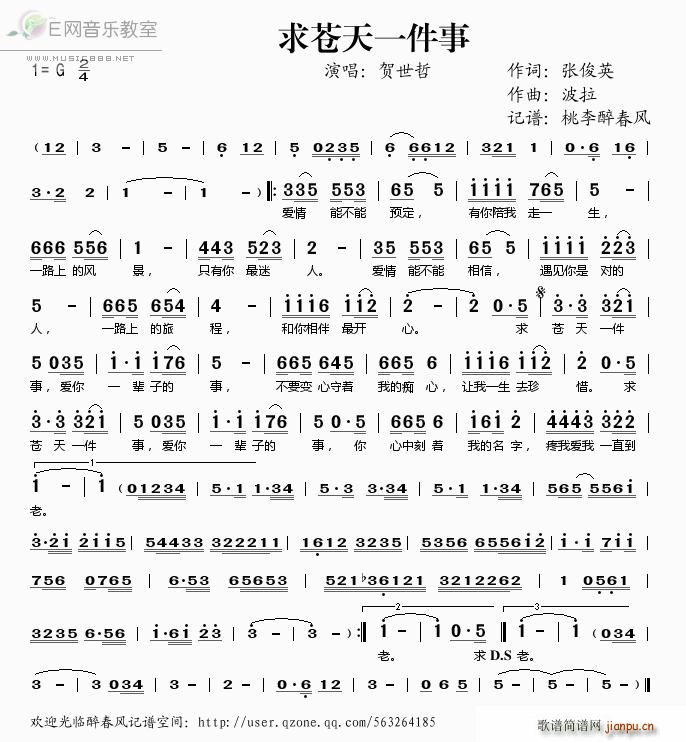 E网音乐教室
www.music888.net
求苍天一件事
1= G 2/4
演唱：贺世哲
作词：张俊英
作曲：波拉
记谱：桃李醉春风
（12 | 3 - | 5 - | 6 12 | 5 0235 | 6 6612 | 321 1 | 10·6 | 16 |
3·2 2 | 1 - | 1 - ）|: 335 553 | 65 5 | 1111 765 | 5 - |
爱情 能不能 预定， 有你陪我 走一 生，
666 556 | 1 - | 443 523 | 2 - | 35 553 | 65 5 | 1111 223 |
一路上 的风 景， 只有你 最迷 人。 爱情 能不能 相信， 遇见你是 对的
5 - | 665 654 | 4 - | 1111 112 | 2 - | 2 0·5 | 3·3 323 |
人， 一路上 的旅 程， 和你相伴 最开 心。 求 苍天 一件
5 035 | 1·1 176 | 5 5 | 665 645 | 665 6 | 1116 112 | 2 0·5 |
事，爱你 一 辈子的 事， 不要变 心守着 我的痴 心，让我一生 去珍 惜。 求
3·3 321 | 5 035 | 1·1 176 | 5 0·5 | 665 6 | 161 2 | 4443 322 |
苍 天 一件 事，爱你 一 辈子的 事， 你 心中刻 着 我的名 字，疼我爱我 一直到
1
1 - | 1 （01234 | 5·1 1234 | 5·3 3234 | 5·3 | 565 5555 |
老。
3·21 2115 | 54433 322211 | 1612 3235 | 5356 655612 | 1·1 711 |
756 0765 | 6·53 65653 | 521♭36121 3212262 | 1 0561 |
3235 6·56 | 1·61 23 | 3 - | 3 - ）:| 1 - | 1 0·5 | 1 - | 1 （034 |
2
3
老。 求 D.S 老。
3 - | 3 034 | 3 - | 2 - | 2 0·6 | 5·6 3 | 5 - | 5 - ）|
欢迎光临醉春风记谱空间：http://user.qzone.qq.com/563264185
歌谱简谱网
jianpu.cn